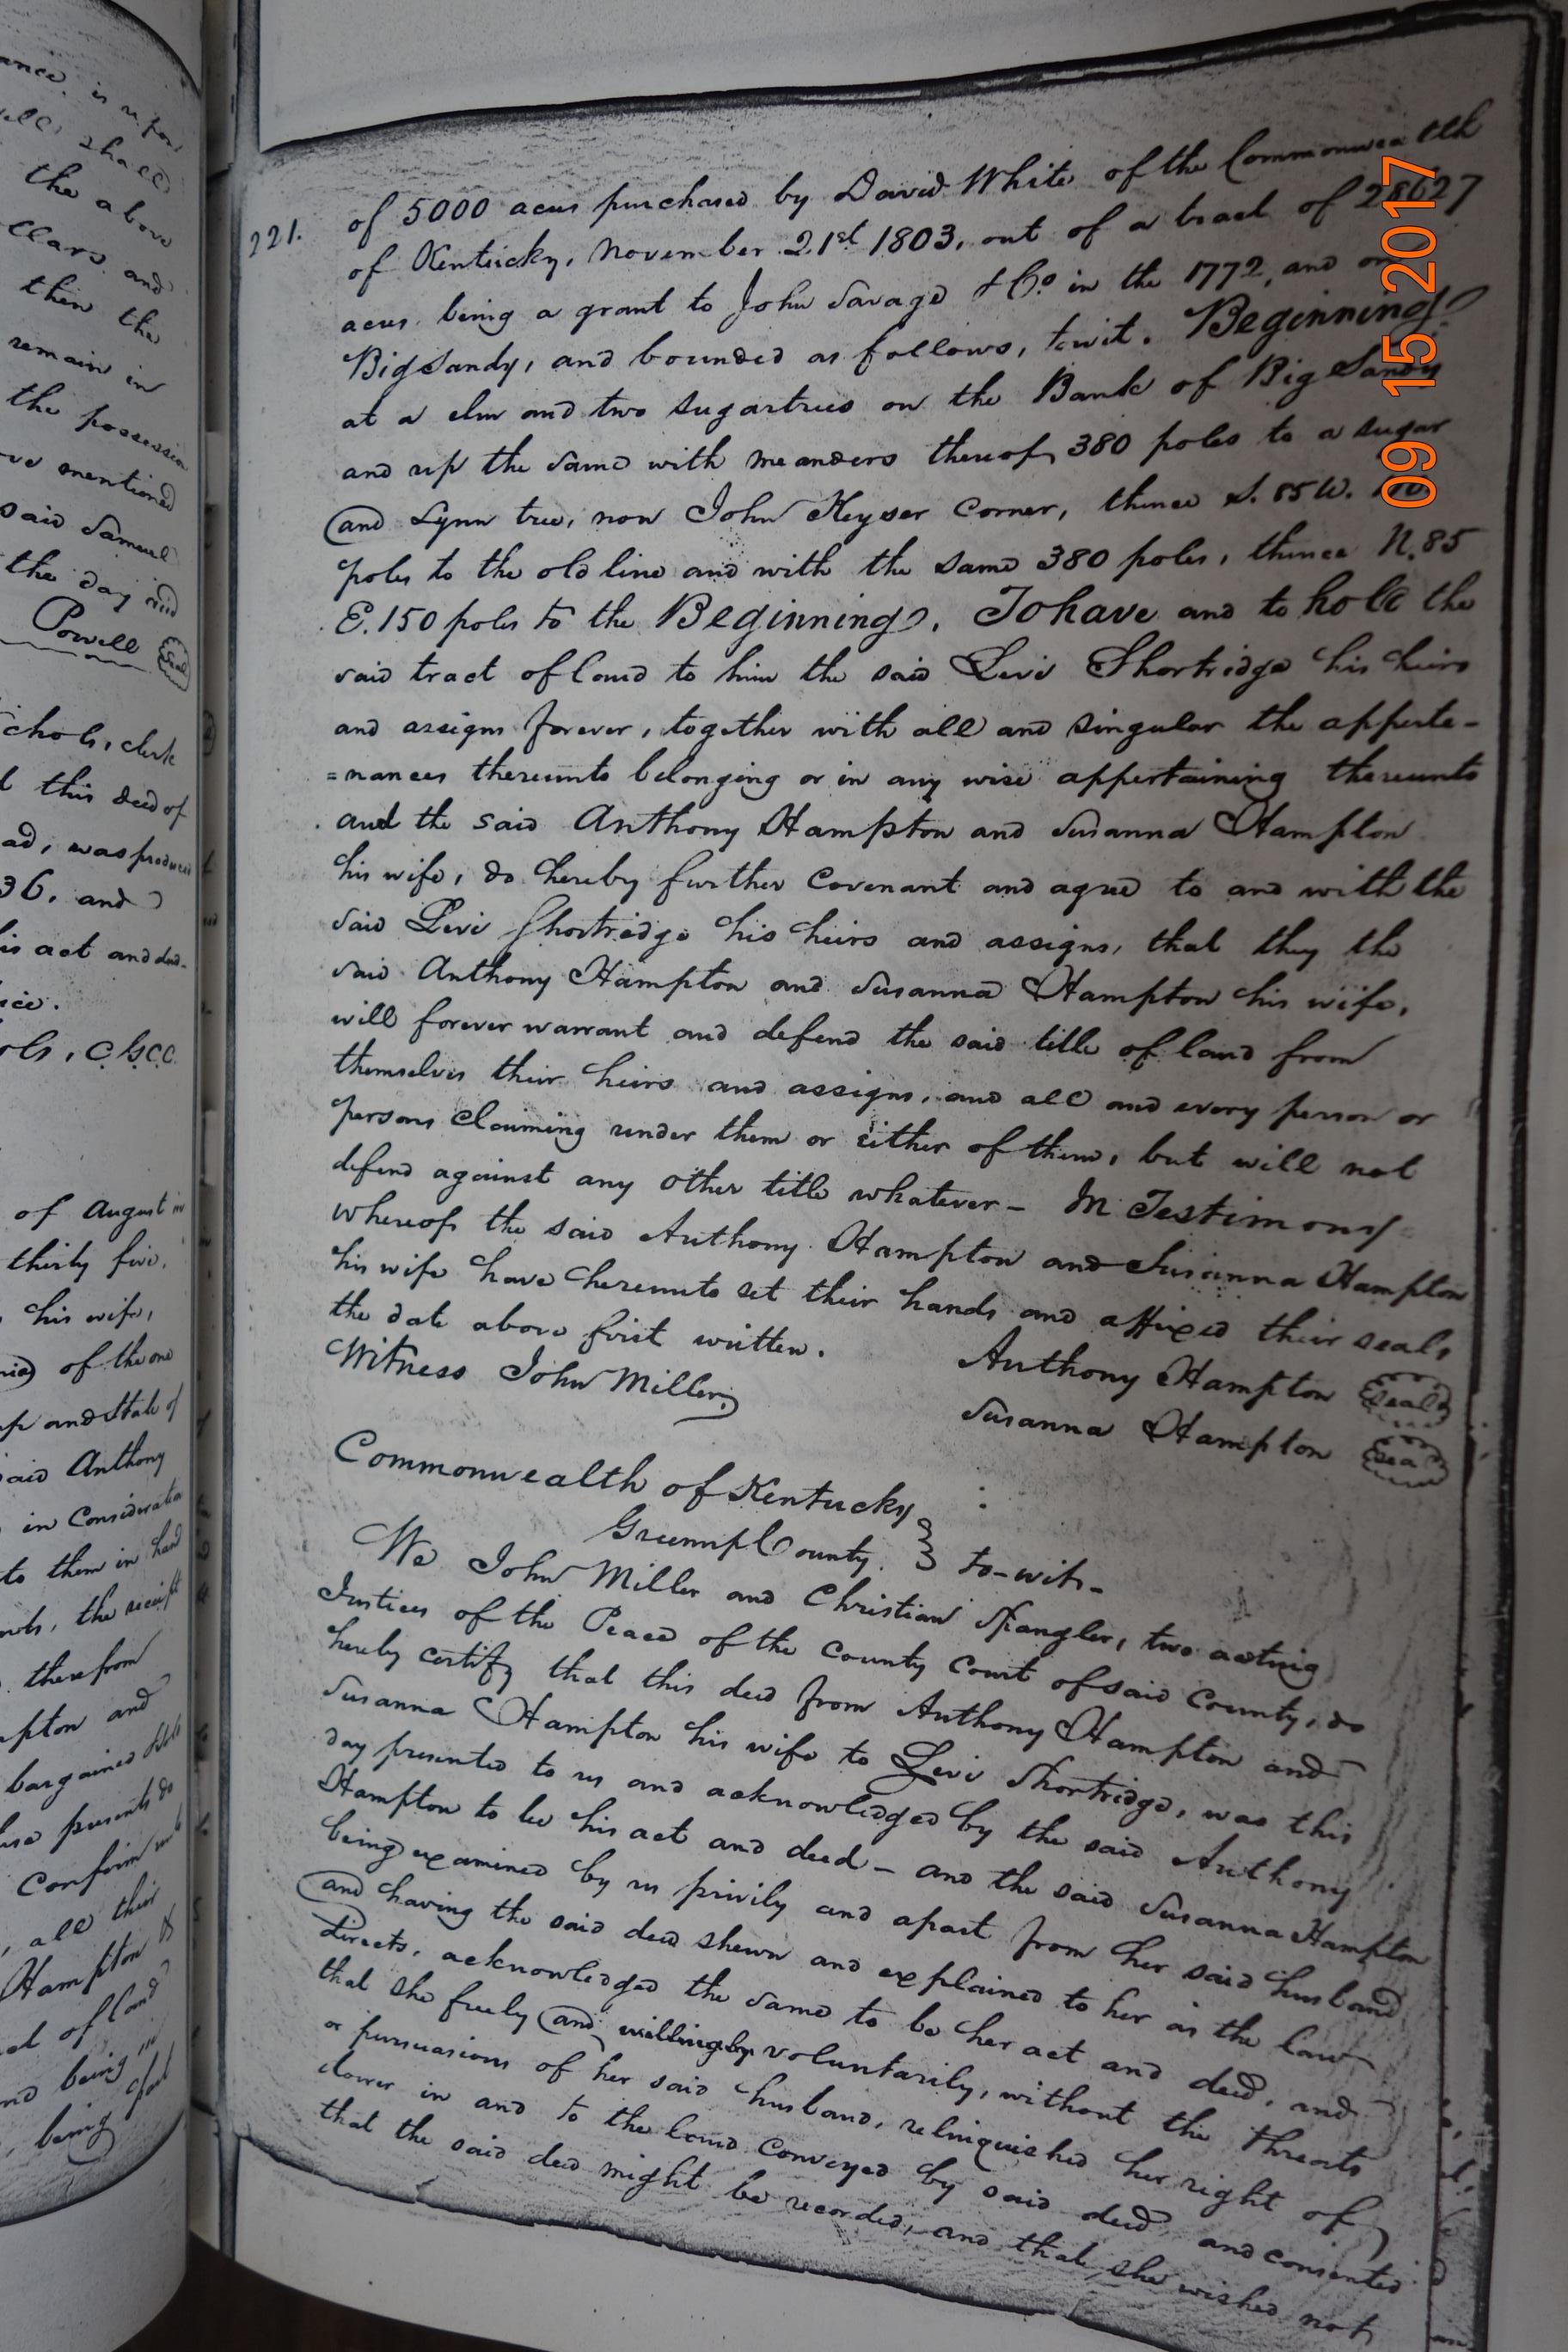 ance, is
shall
the above
llars and
then the
remain in
the possession
mentioned
said Samuel
the day and
Powell Seal
chols, clerk
this deed of
ad, was produced
36. and
his act and deed.
ols, C.G.C.C.
of August in
thirty five,
his wife,
of the one
and State of
said Anthony
in Consideration
to them in hand
the receipt
therefrom
mpton and
bargained
presents do
Confirm
all their
Hampton
of land
and being in
being
221.
of 5000 acres purchased by David White of the Commonwealth
of Kentucky, November 21st 1803, out of a tract of 28627
acres being a grant to John Savage & Co in the 1772, and on
Big Sandy, and bounded as follows, towit. Beginning
at a elm and two sugartrees on the Bank of Big Sandy
and up the same with meanders thereof, 380 poles to a sugar
and Lynn tree, now John Keyser Corner, thence S. 85 W.
poles to the old line and with the same 380 poles, thence N. 85
E. 150 poles to the Beginning. To have and to hold the
said tract of land to him the said Levi Shortridge his heirs
and assigns forever, together with all and singular the apperte-
=nances thereunto belonging or in any wise appertaining thereunto
and the said Anthony Hampton and Susanna Hampton
his wife, do hereby further Covenant and agree to and with the
said Levi Shortridge his heirs and assigns, that they the
said Anthony Hampton and Susanna Hampton his wife,
will forever warrant and defend the said title of land from
themselves their heirs and assigns, and all and every person or
persons Claiming under them or either of them, but will not
defend against any other title whatever- In Testimony
whereof, the said Anthony Hampton and Susanna Hampton
his wife have hereunto set their hands and affixed their seals
the date above first written.
Anthony Hampton Seal
Witness John Miller,
Susanna Hampton Seal
Commonwealth of Kentucky
Greenup County. } to-wit-
We John Miller and Christian Spangler, two acting
Justices of the Peace of the County Court of said County, do
hereby certify that this deed from Anthony Hampton and
Susanna Hampton his wife to Levi Shortridge, was this
day presented to us and acknowledged by the said Anthony
Hampton to be his act and deed - and the said Susanna Hampton
being examined by us privily and apart from her said husband
and having the said deed shewn and explained to her as the law
directs, acknowledged the same to be her act and deed, and
that she freely and willingly voluntarily, without the threats
or pursuasions of her said husband, relinquished her right of
dower in and to the land Conveyed by said deed, and consented
that the said deed might be recorded, and that she wished not
09 15 2017